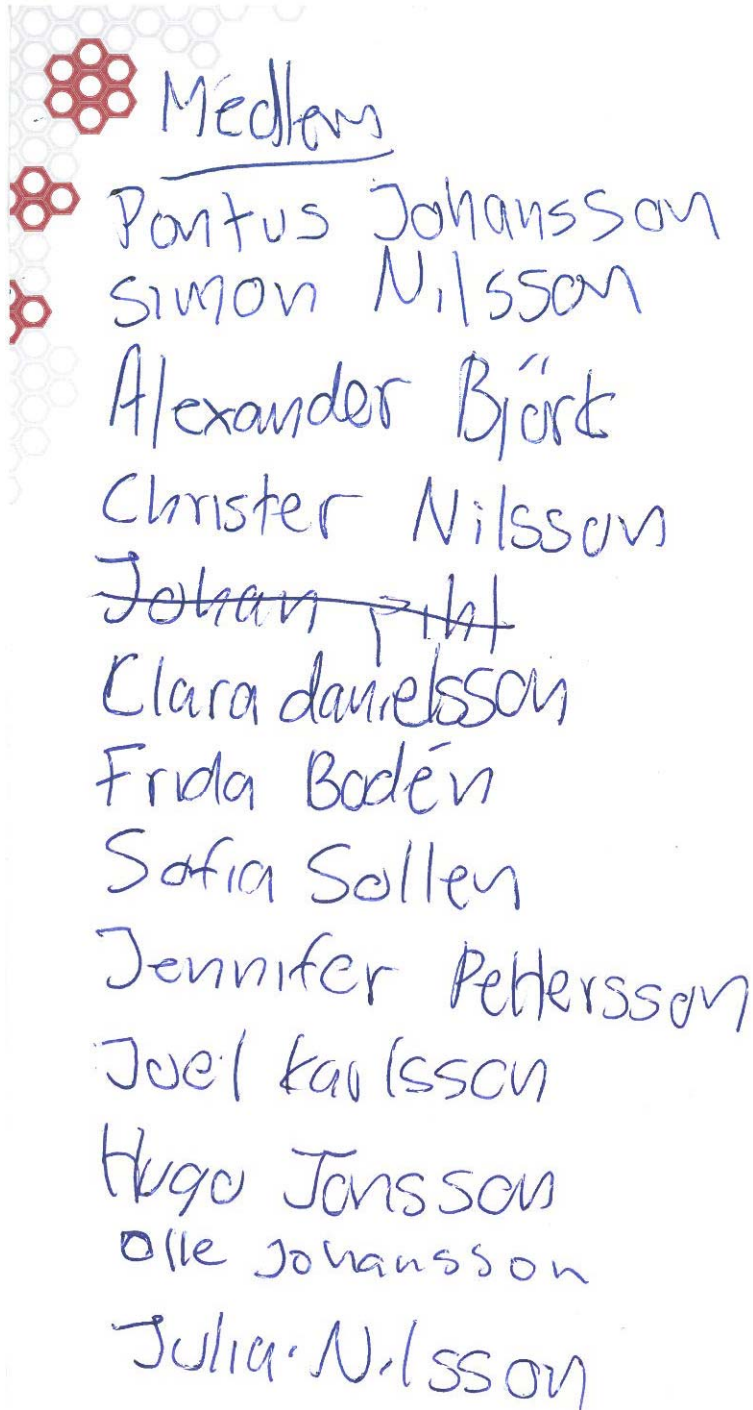 Medlem
Pontus Johansson
Simon Nilsson
Alexander Björk
Christer Nilsson
Johan pihl
Clara danielsson
Frida Bodén
Sofia Sollen
Jennifer Pettersson
Joel Karlsson
Hugo Jonsson
Olle Johansson
Julia Nilsson